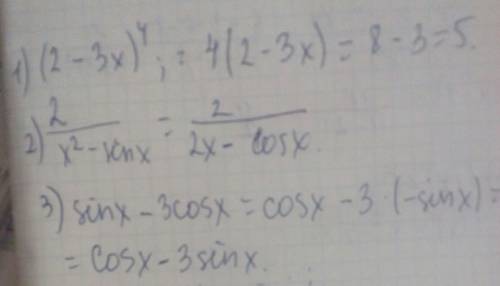 1) (2 - 3x)^4; = 4(2 - 3x) = 8 - 3 = 5.
2) 2/(x² - sinx) = 2/(2x - cosx).
3) sinx - 3cosx = cosx - 3 · (-sinx) =
= cosx - 3sinx.